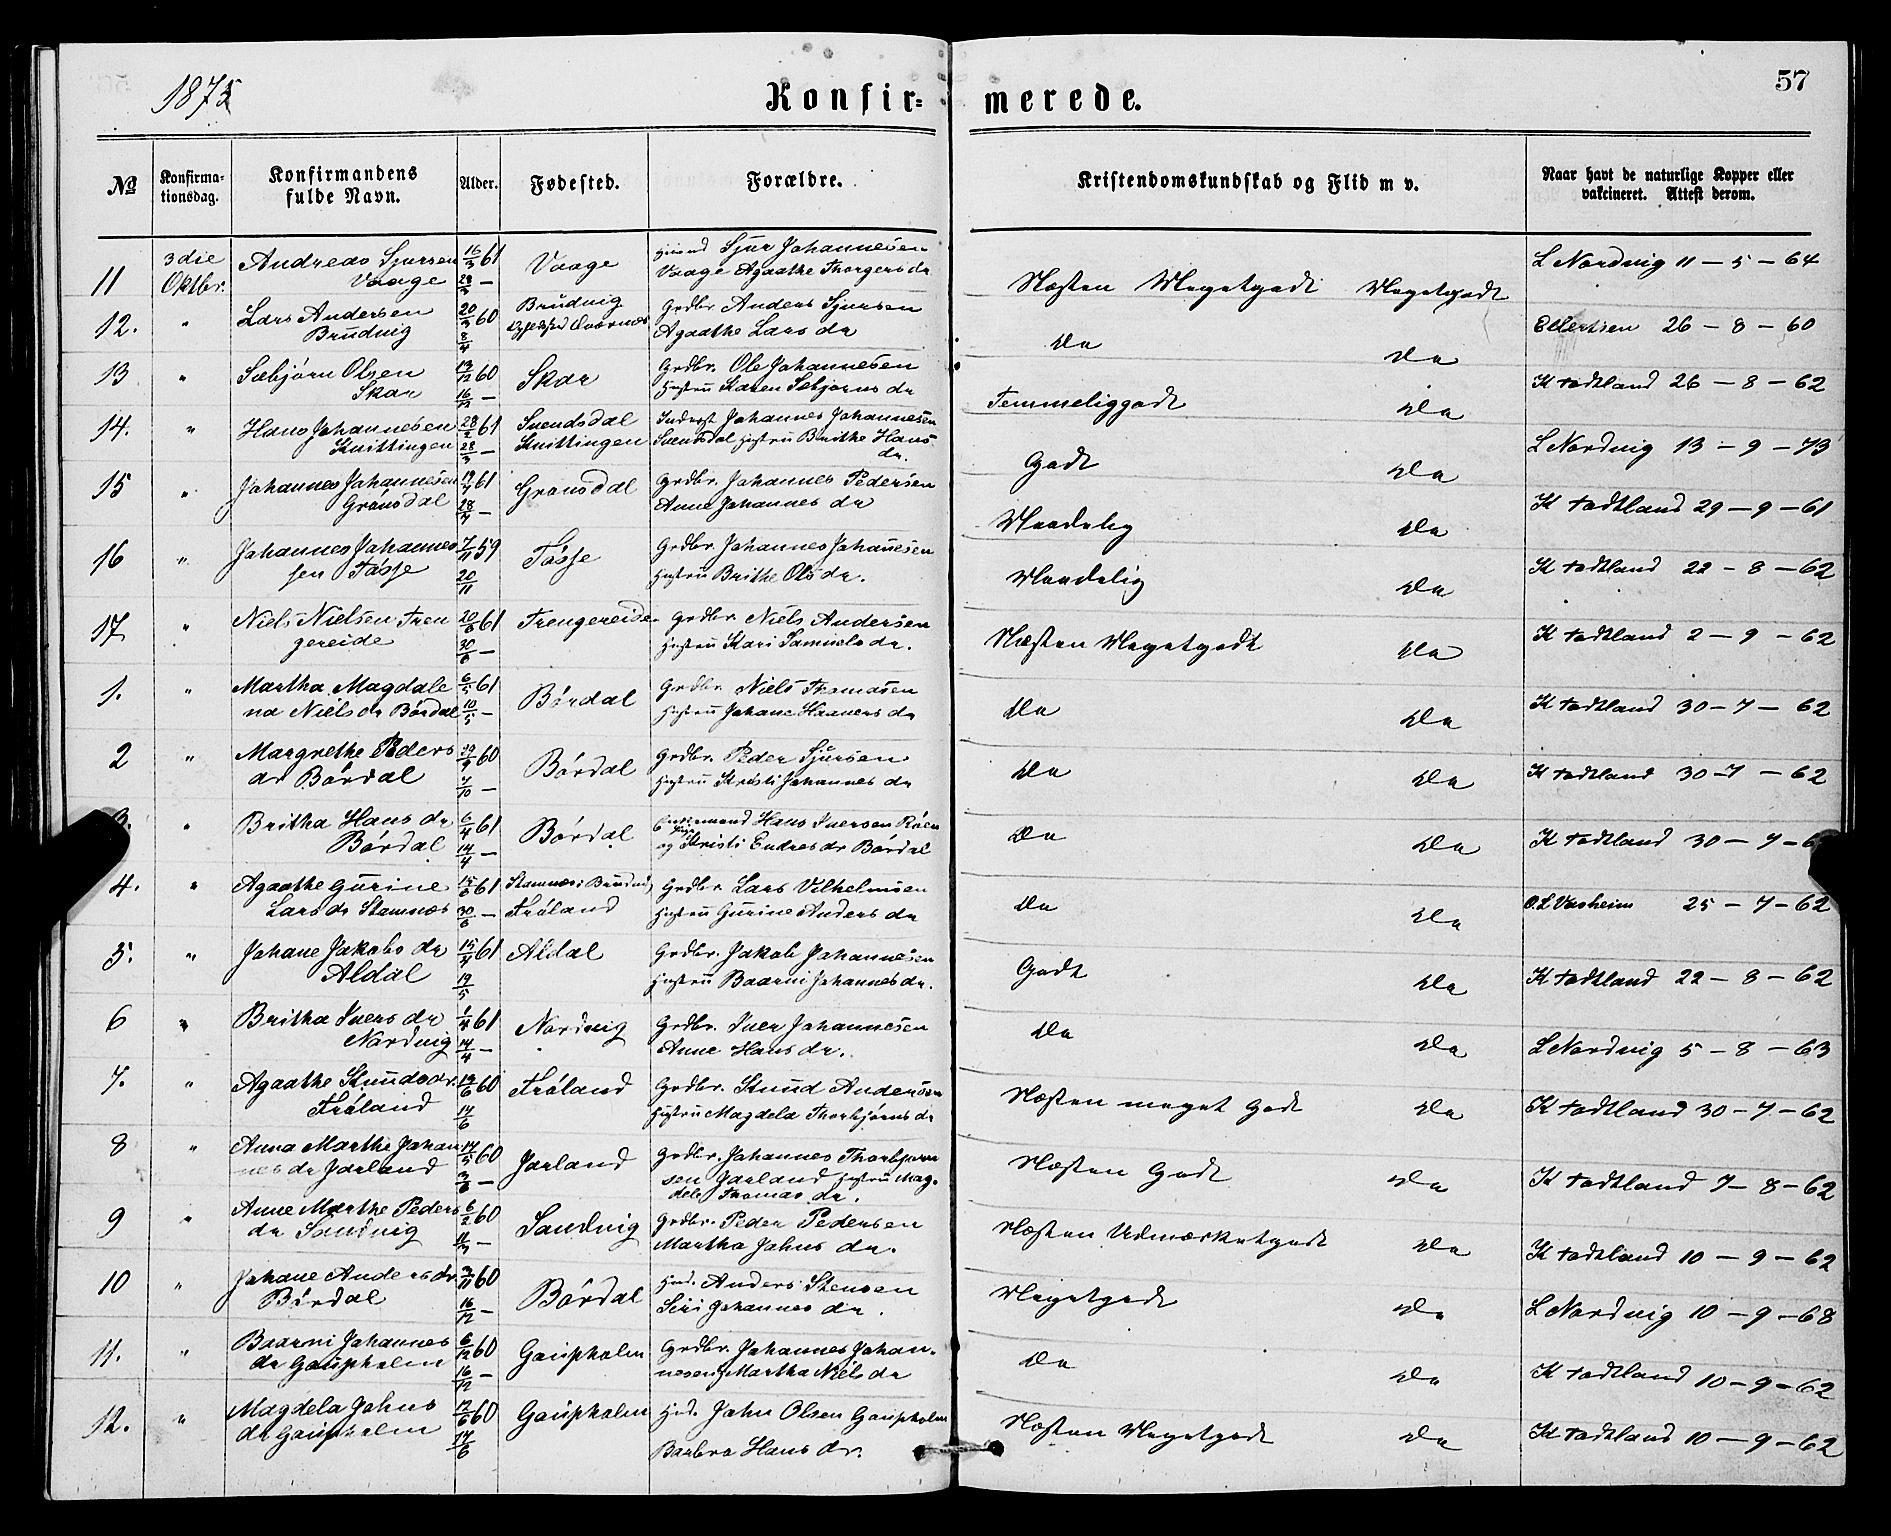 1875
Konfir=merede.
57
№ Konfirma-tionsdag. Konfirmandens fulde Navn. Alder. Fødested. Forældre. Kristendomskundskab og Flid m v. Naar havt de naturlige Kopper eller vakcineret. Attest derom.
11 3die Oktbr. Andreas Sjursen Vaage 16/3 61 Vaage Sjur Johannesen Vaage Agaathe Thorgers dr Næsten Megetgodt Megetgodt L Nordvig 11 – 5 – 64
12. " Lars Andersen Brudvig 20/3 60 8/4 Brudvig Grdbr Anders Sjursen Agaathe Lars dr Do Do Ellertsen 26 – 8 – 60
13 " Sæbjørn Olsen Skar 13/12 60 16/12 – Skar Grdbr. Ole Johannesen Hustru Karen Sæbjørns dr Temmeliggodt Do K Tadtland 26 – 8 – 62
14. " Hans Johannesen Knittingen 28/2 61 28/3 – Svendsdal Knittingen Inderst Johannes Johannesen Svendsdal Hustru Brithe Hans dr. Godt Do L Nordvig 13 – 9 – 73
15 " Johannes Johannesen Grønsdal 19/4 61 28/4 – Grønsdal Grdbr. Johannes Pedersen Anne Johannes dr Maadelig Do K Tadtland 29 – 9 – 61
16 " Johannes Johannes sen Tøsse 7/11 59 20/11 Tøsse Grdbr. Johannes Johanesen Hustru Brithe Ols dr. Maadelig Do K Tadtland 22 – 8 – 62
17 " Niels Nielsen Tren gereide 20/6 61 30/6 – Trengereide Grdbr Niels Andersen Hustru Kari Samuels dr. Næsten Megetgodt Do K Tadtland 2 – 9 – 62
1. " Martha Magdale na Niels dr Børdal 6/5 61 10/5 – Børdal Grdbr Niels Thomasen Hustru Johane Haavers dr Do Do K Tadtland 30 – 7 – 62
2 " Margrethe Peders dr Børdal 29/9 60 7/10 – Børdal Grdbr. Peder Sjursen Hustru Kristi Johannes dr Do Do K Tadtland 30 – 7 – 62
3. " Britha Hans dr Børdal 6/4 61 14/4 – Børdal Hans Iversen Røen og Kristi Endres dr Børdal Do Do K Tadtland 30 – 7 – 6
4. " Agaathe Gurine Lars dr Stamnæs 15/6 61 30/6 – Stamnæs i Brudvi Frøland Grdbr. Lars Vilhelmsen Hustru Gurine Anders dr Do Do 25 – 7 – 62
5. " Johane Jakobs dr Aldal 15/4 61 19/5 Aldal Grdbr. Jakob Johannesen Hustru Baarni Johannes dr. Godt Do K Tadtland 22 – 8 – 62
6 " Britha Ivers dr Nordvig 1/4 61 14/4 – Nordvig Grdbr. Iver Johannesen Anne Hans dr. Do Do L Nordvig 5 – 8 – 63
7. " Agaathe Knuds dr. Frøland 19/6 60 17/6 Frøland Grdbr. Knud Andersen Hustru Magdela Thorbjørns dr Næsten meget Godt Do K Tadtland 30 – 7 – 62
8 " Anna Marthe Johan nes dr Jarland 17/5 60 3/6 – Jarland Grdbr. Johannes Thorbjørn sen Jarland Hustru Mag-dele Thomas dr. Næsten Godt Do K Tadtland 7 – 8 – 62
9 " Anne Marthe Peders dr Sandvig 6/2 60 11/3 – Sandvig Grdbr. Peder Pedersen Martha Johns dr. Næsten Udmærketgodt Do K Tadtland 10 – 9 – 62
10 " Johane Anders dr Børdal 3/11 60 16/12 – Børdal Hmd. Anders Stensen Siri Johannes dr. Megetgodt Do L Nordvig 10 – 9 – 68
11. " Baarni Johannes dr Gaupholm 6/12 60 16/12 – Gaupholm Grdbr. Johannes Johan-nesen Martha Niels dr Do Do K Tadtland 10 – 9 – 62
12. " Magdela Johns dr Gaupholm 12/6 60 17/6 Gaupholm Hmd. John Olsen Gaupholm Barbra Hans dr. Næsten Megetgodt Do K Tadtland 10 – 9 – 62